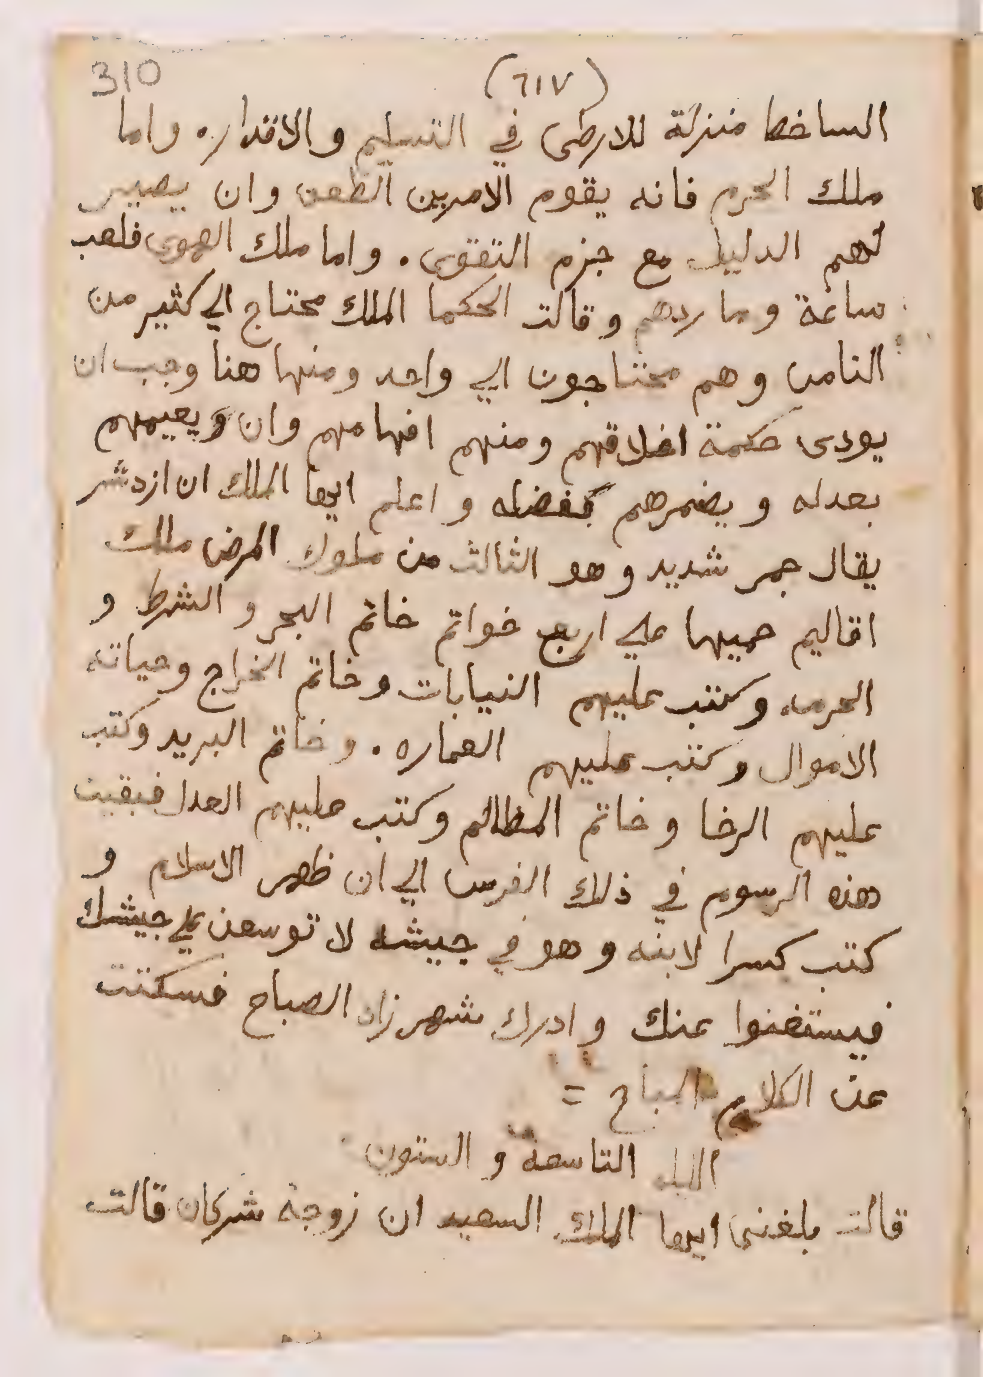 310
(٦١٧)
الساخط منزلة للارضى في التسليم والاقتدار، واما
ملك الحرم فانه يقوم الامرين الطعن وان يصير
لهم الدليل مع جزم التقوى . واما ملك الهوى فلعب
ساعة وما ردهم وقالت الحكما الملك محتاج الي كثير من
الناس وهم محتاجون الي واحد ومنها هنا وجب ان
يودى حكمة اخلاقهم ومنهم افهامهم وان ويعيمهم
بعدله ويضمرهم بفضله واعلم ايها الملك ان ازدشر
يقال جمر شديد وهو الثالث من ملوك المرض ملك
اقاليم جميها علي اربع خواتم خاتم البحر والشرط و
الحرمه وكتب عليهم النيابات وخاتم الخراج وحياته
الاموال وكتب عليهم العماره . وخاتم البريد وكتب
عليهم الرخا وخاتم المظالم وكتب عليهم العدل فبقيت
هذه الرسوم في ذلك الفرس الي ان ظهر الاسلام و
كتب كسرا لابنه وهو في جيشه لا توسعن علي جيشك
فيستغنوا عنك وادرك شهرزاد الصباح فسكتت
عن الكلام المباح =
الليله التاسعة والستون
قالت بلغنى ايها الملك السعيد ان زوجة شركان قالت